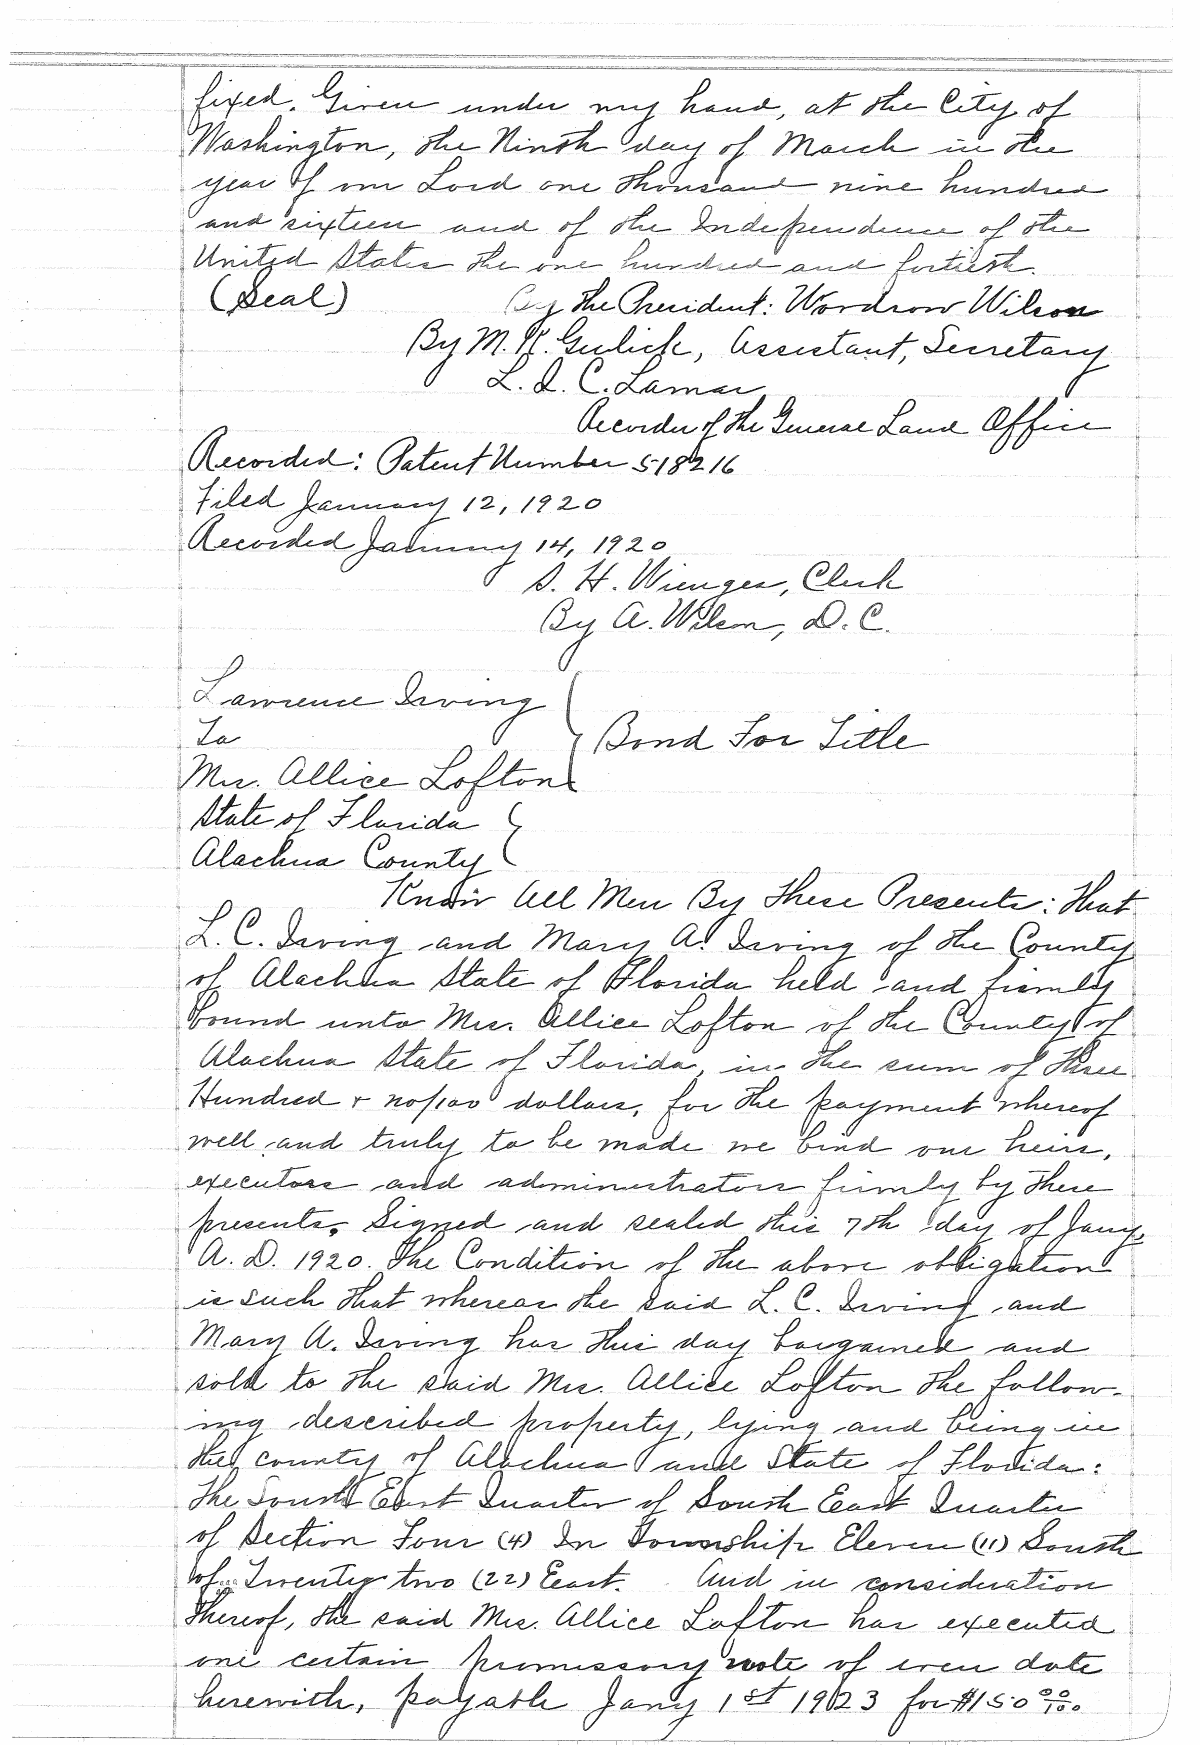 fixed. Given under my hand, at the City of
Washington, the Ninth day of March in the
year of our Lord one thousand nine hundred
and sixteen and of the Independence of the
United States the one hundred and fortieth.
(Seal) By the President: Woodrow Wilson
By M. P. Gulick, Assistant, Secretary
L. Q. C. Lamar
Recorder of the General Land Office
Recorded: Patent Number 518216
Filed January 12, 1920
Recorded January 14, 1920
S. H. Wienges, Clerk
By A. Wilson, D. C.
Lawrence Irving
To
Mrs. Allice Lofton
Bond For Title
State of Florida
Alachua County
Know All Men By These Presents: That
L. C. Irving and Mary A. Irving of the County
of Alachua State of Florida held and firmly
bound unto Mrs. Allice Lofton of the County of
Alachua State of Florida, in the sum of three
Hundred & no/100 dollars, for the payment whereof
well and truly to be made we bind our heirs,
executors and administrators firmly by these
presents. Signed and sealed this 7th day of Jany.
A. D. 1920. The Condition of the above obligation
is such that whereas the said L. C. Irving and
Mary A. Irving has this day bargained and
sold to the said Mrs. Allice Lofton the follow-
ing described property, lying and being in
the county of Alachua and State of Florida:
The South East Quarter of South East Quarter
of Section Four (4) In Township Eleven (11) South
of Twenty two (22) East. And in consideration
thereof, the said Mrs. Allice Lofton has executed
one certain promissory note of even date
herewith, payable Jany 1st 1923 for $150 00/100